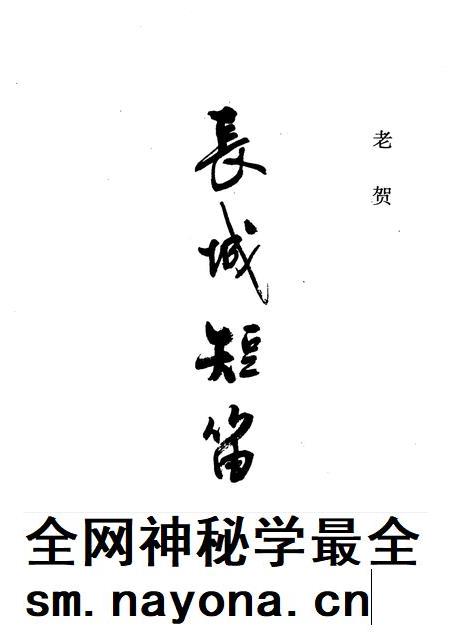 老贺
長城短笛
全网神秘学最全
sm.nayona.cn